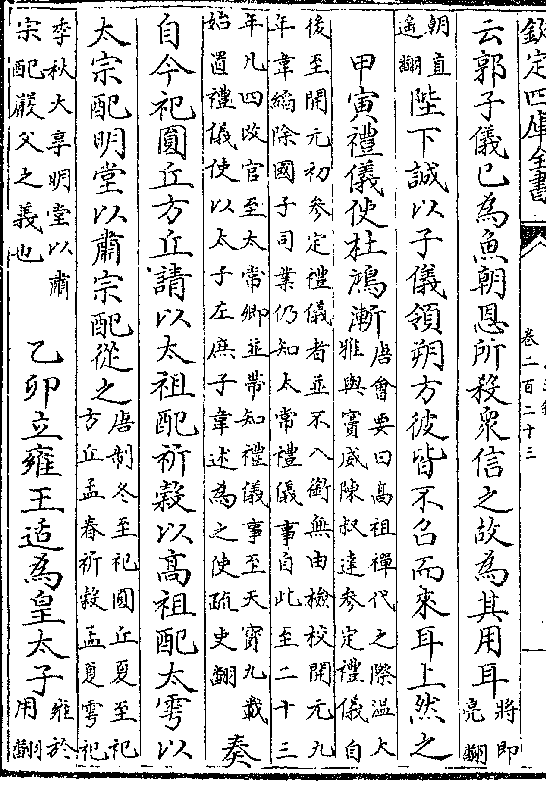 欽定四庫全書
卷二百二十三
云郭子儀已為魚朝恩所殺衆信之故為其用耳
將即
亮翻
朝直
遥翻
陛下誠以子儀領朔方彼皆不召而來耳上然之
甲寅禮儀使杜鴻漸
唐會要曰高祖禪代之際温大
雅與竇威陳叔達參定禮儀自
後至開元初參定禮儀者並不入銜無由檢校開元九
年韋縚除國子司業仍知太常禮儀事自此至二十三
年凡四改官至太常卿並帶知禮儀事至天寶九載
始置禮儀使以太子左庶子韋述為之使疏吏翻
奏
自今祀圓丘方丘請以太祖配祈穀以高祖配太雩以
太宗配明堂以肅宗配從之
唐制冬至祀圓丘夏至祀
方丘孟春祈穀孟夏雩祀
季秋大享明堂以肅
宗配嚴父之義也
乙卯立雍王适為皇太子
雍於
用翻